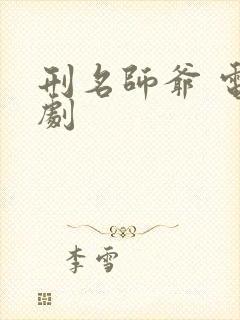 刑名師爺 電
劇
李雪